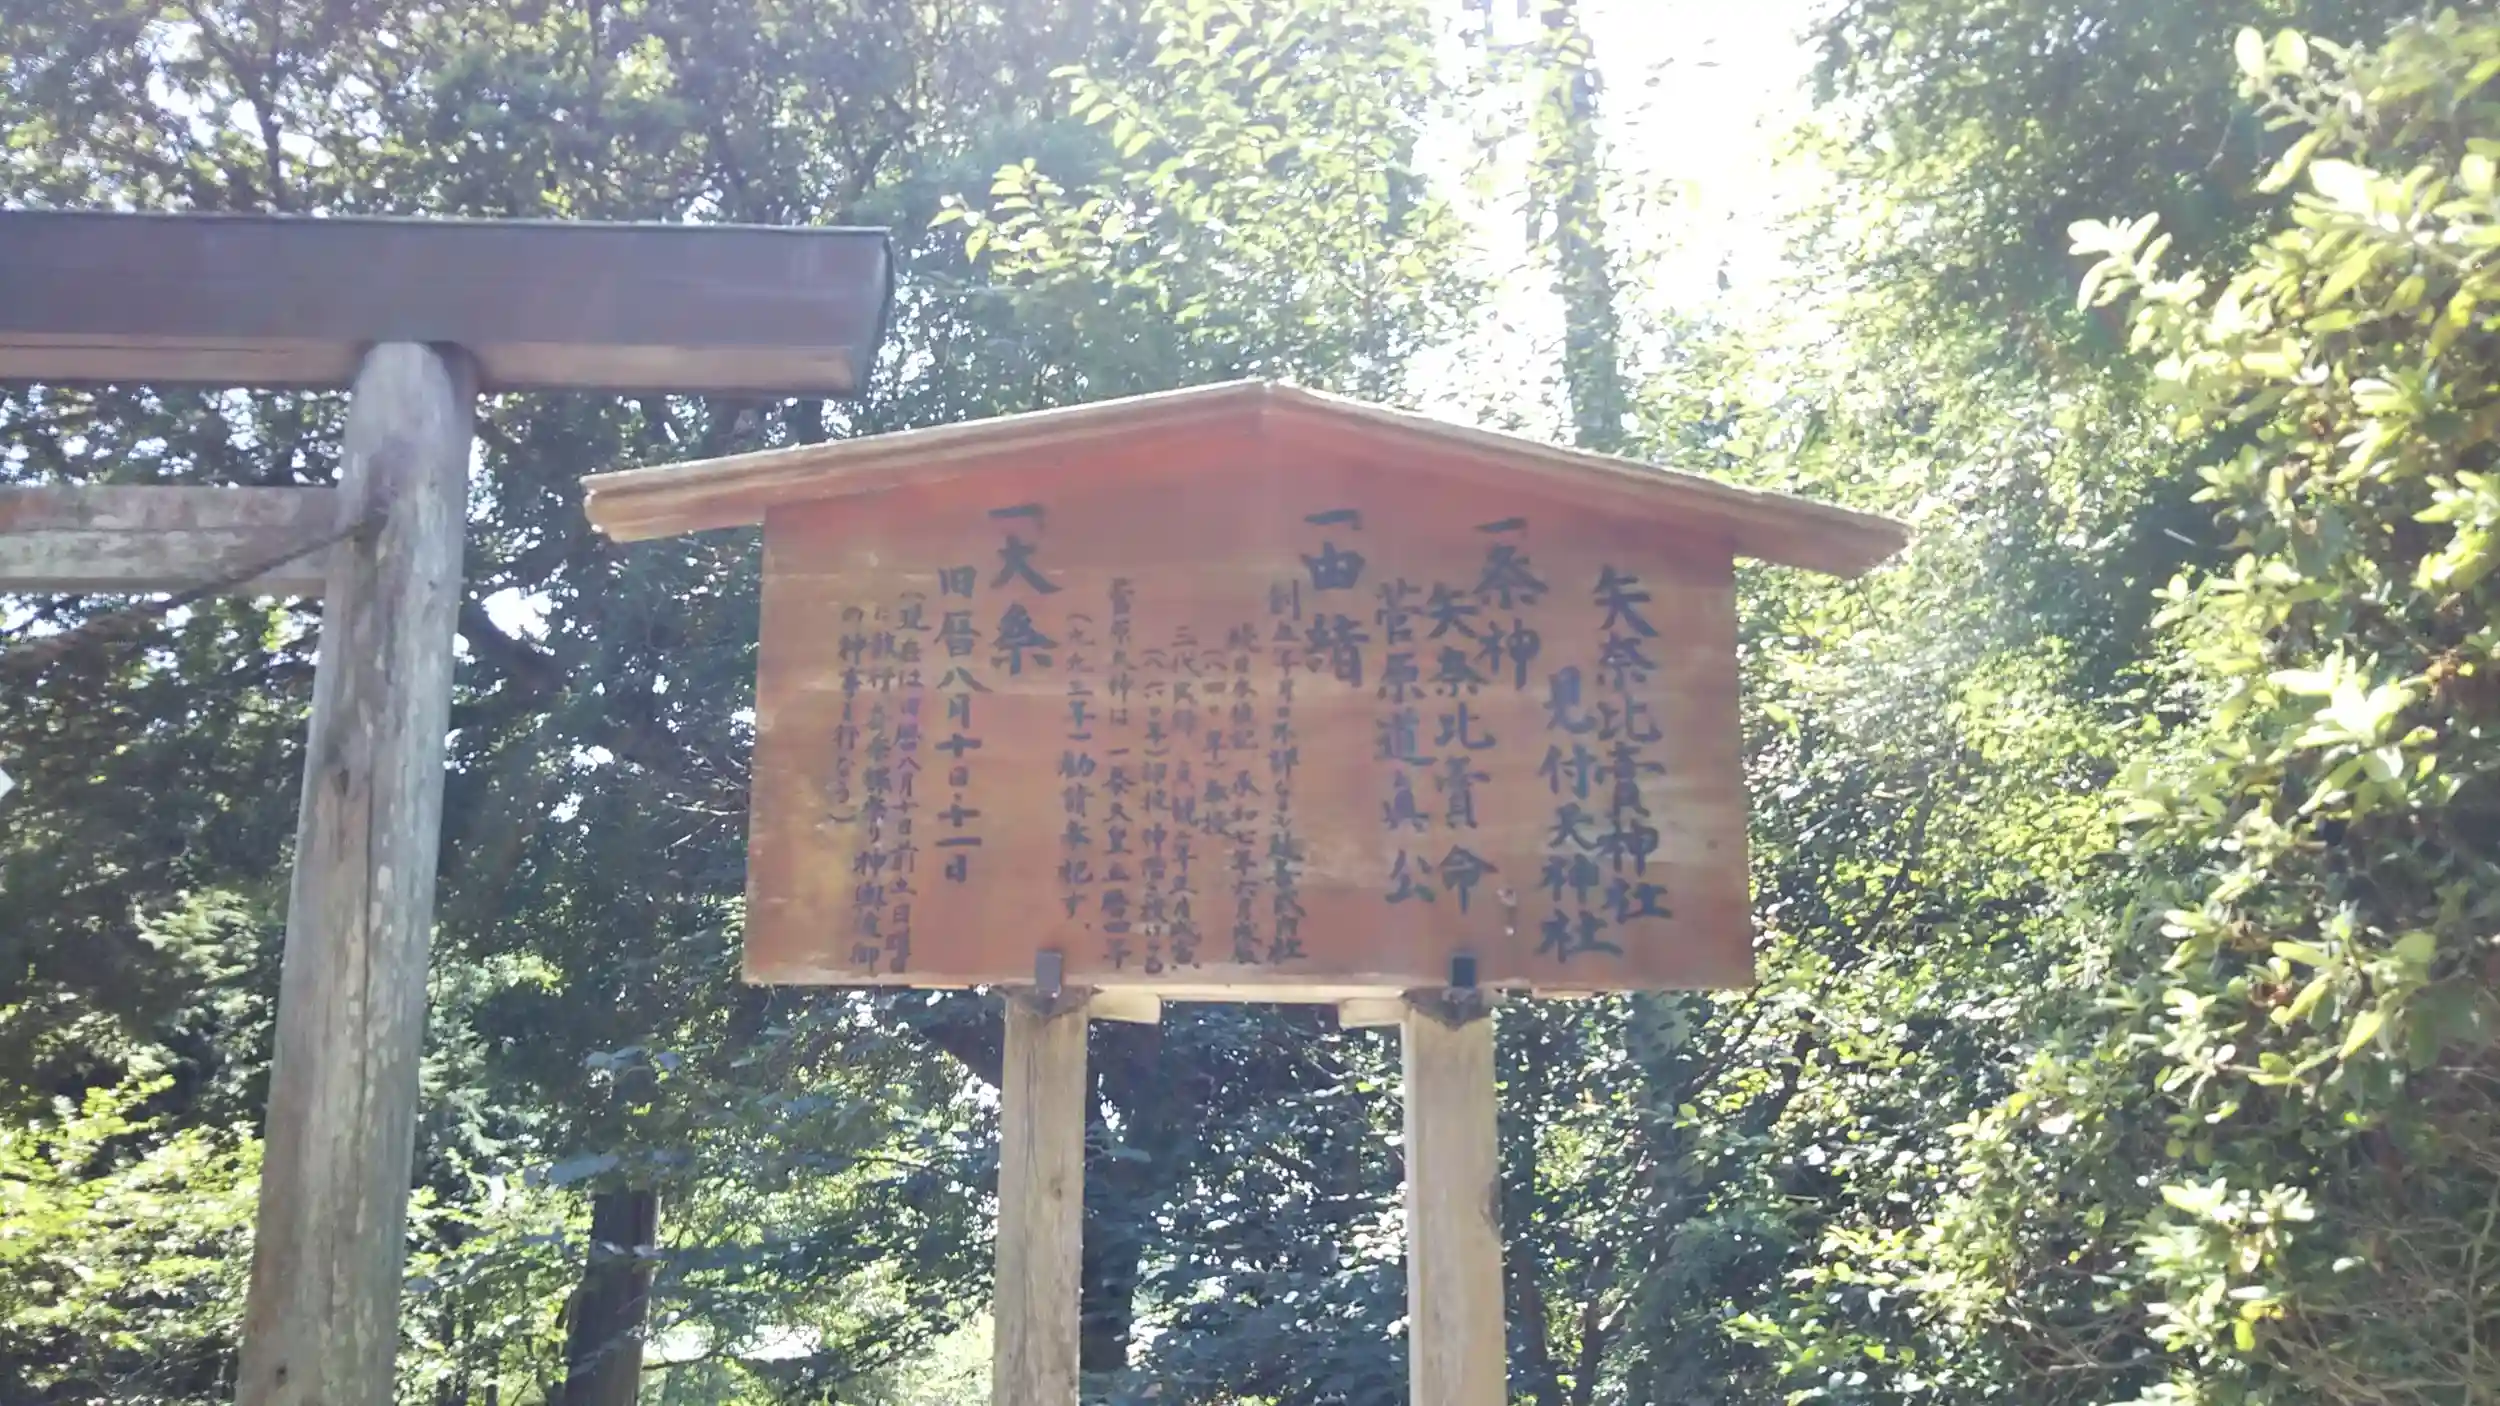 矢奈比賣神社
見付天神社
一祭神
矢奈比賣命
菅原道真公
一由緒
創立年月日不詳なるも延喜式内社
続日本後記 承和七年六月
(八四〇年)
三代実録 貞観二年正月
(八六〇年)神階を授ける
菅原天神は一条天皇正暦四年
(九九三年)勧請奉祀す。
一大祭
旧暦八月十日・十一日
(現在は旧暦八月十日前土日曜日
に執行 裸祭り 神輿渡御
の神事を行なう)